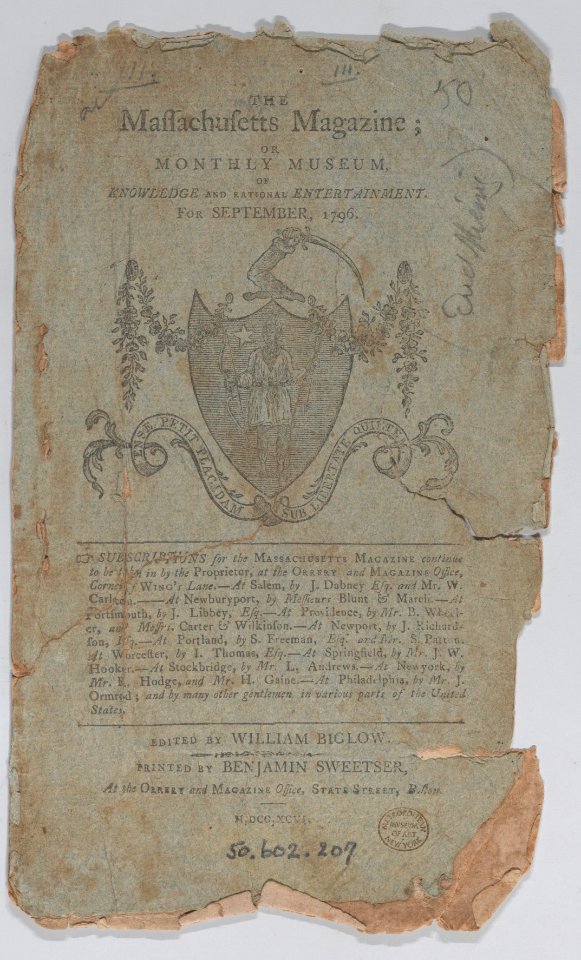 III. III.
50
THE
Maſſachuſetts Magazine;
OR
MONTHLY MUSEUM.
OF
KNOWLEDGE AND RATIONAL ENTERTAINMENT.
FOR SEPTEMBER, 1796.
ENSE PETIT PLACIDAM SUB LIBERTATE QUIETEM
☞ SUBSCRIPTIONS for the MASSACHUSETTS MAGAZINE continue
to be taken in by the Proprietor, at the ORRERY and MAGAZINE Office,
Corner of WING's LANE.—At Salem, by J. Dabney Esq. and Mr. W.
Carlton.——At Newburyport, by Meſſieurs Blunt & March.—At
Portſmouth, by J. Libbey, Eſq.—At Providence, by Mr. B. Wheel-
er, and Meſſrs. Carter & Wilkinſon.—At Newport, by J. Richard-
ſon, Eſq.—At Portland, by S. Freeman, Eſq. and Mr. S. Patten.
At Worceſter, by I. Thomas, Eſq.—At Springfield, by Mr. J. W.
Hooker.—At Stockbridge, by Mr. L. Andrews.—At Newyork, by
Mr. R. Hodge, and Mr. H. Gaine.—At Philadelphia, by Mr. J.
Ormrod; and by many other gentlemen in various parts of the United
States.
EDITED BY WILLIAM BIGLOW.
PRINTED BY BENJAMIN SWEETSER,
At the ORRERY and MAGAZINE Office, STATE STREET, Boſton.
M,DCC,XCVI.
METROPOLITAN
MUSEUM
OF ART
NEW YORK
50.602.207